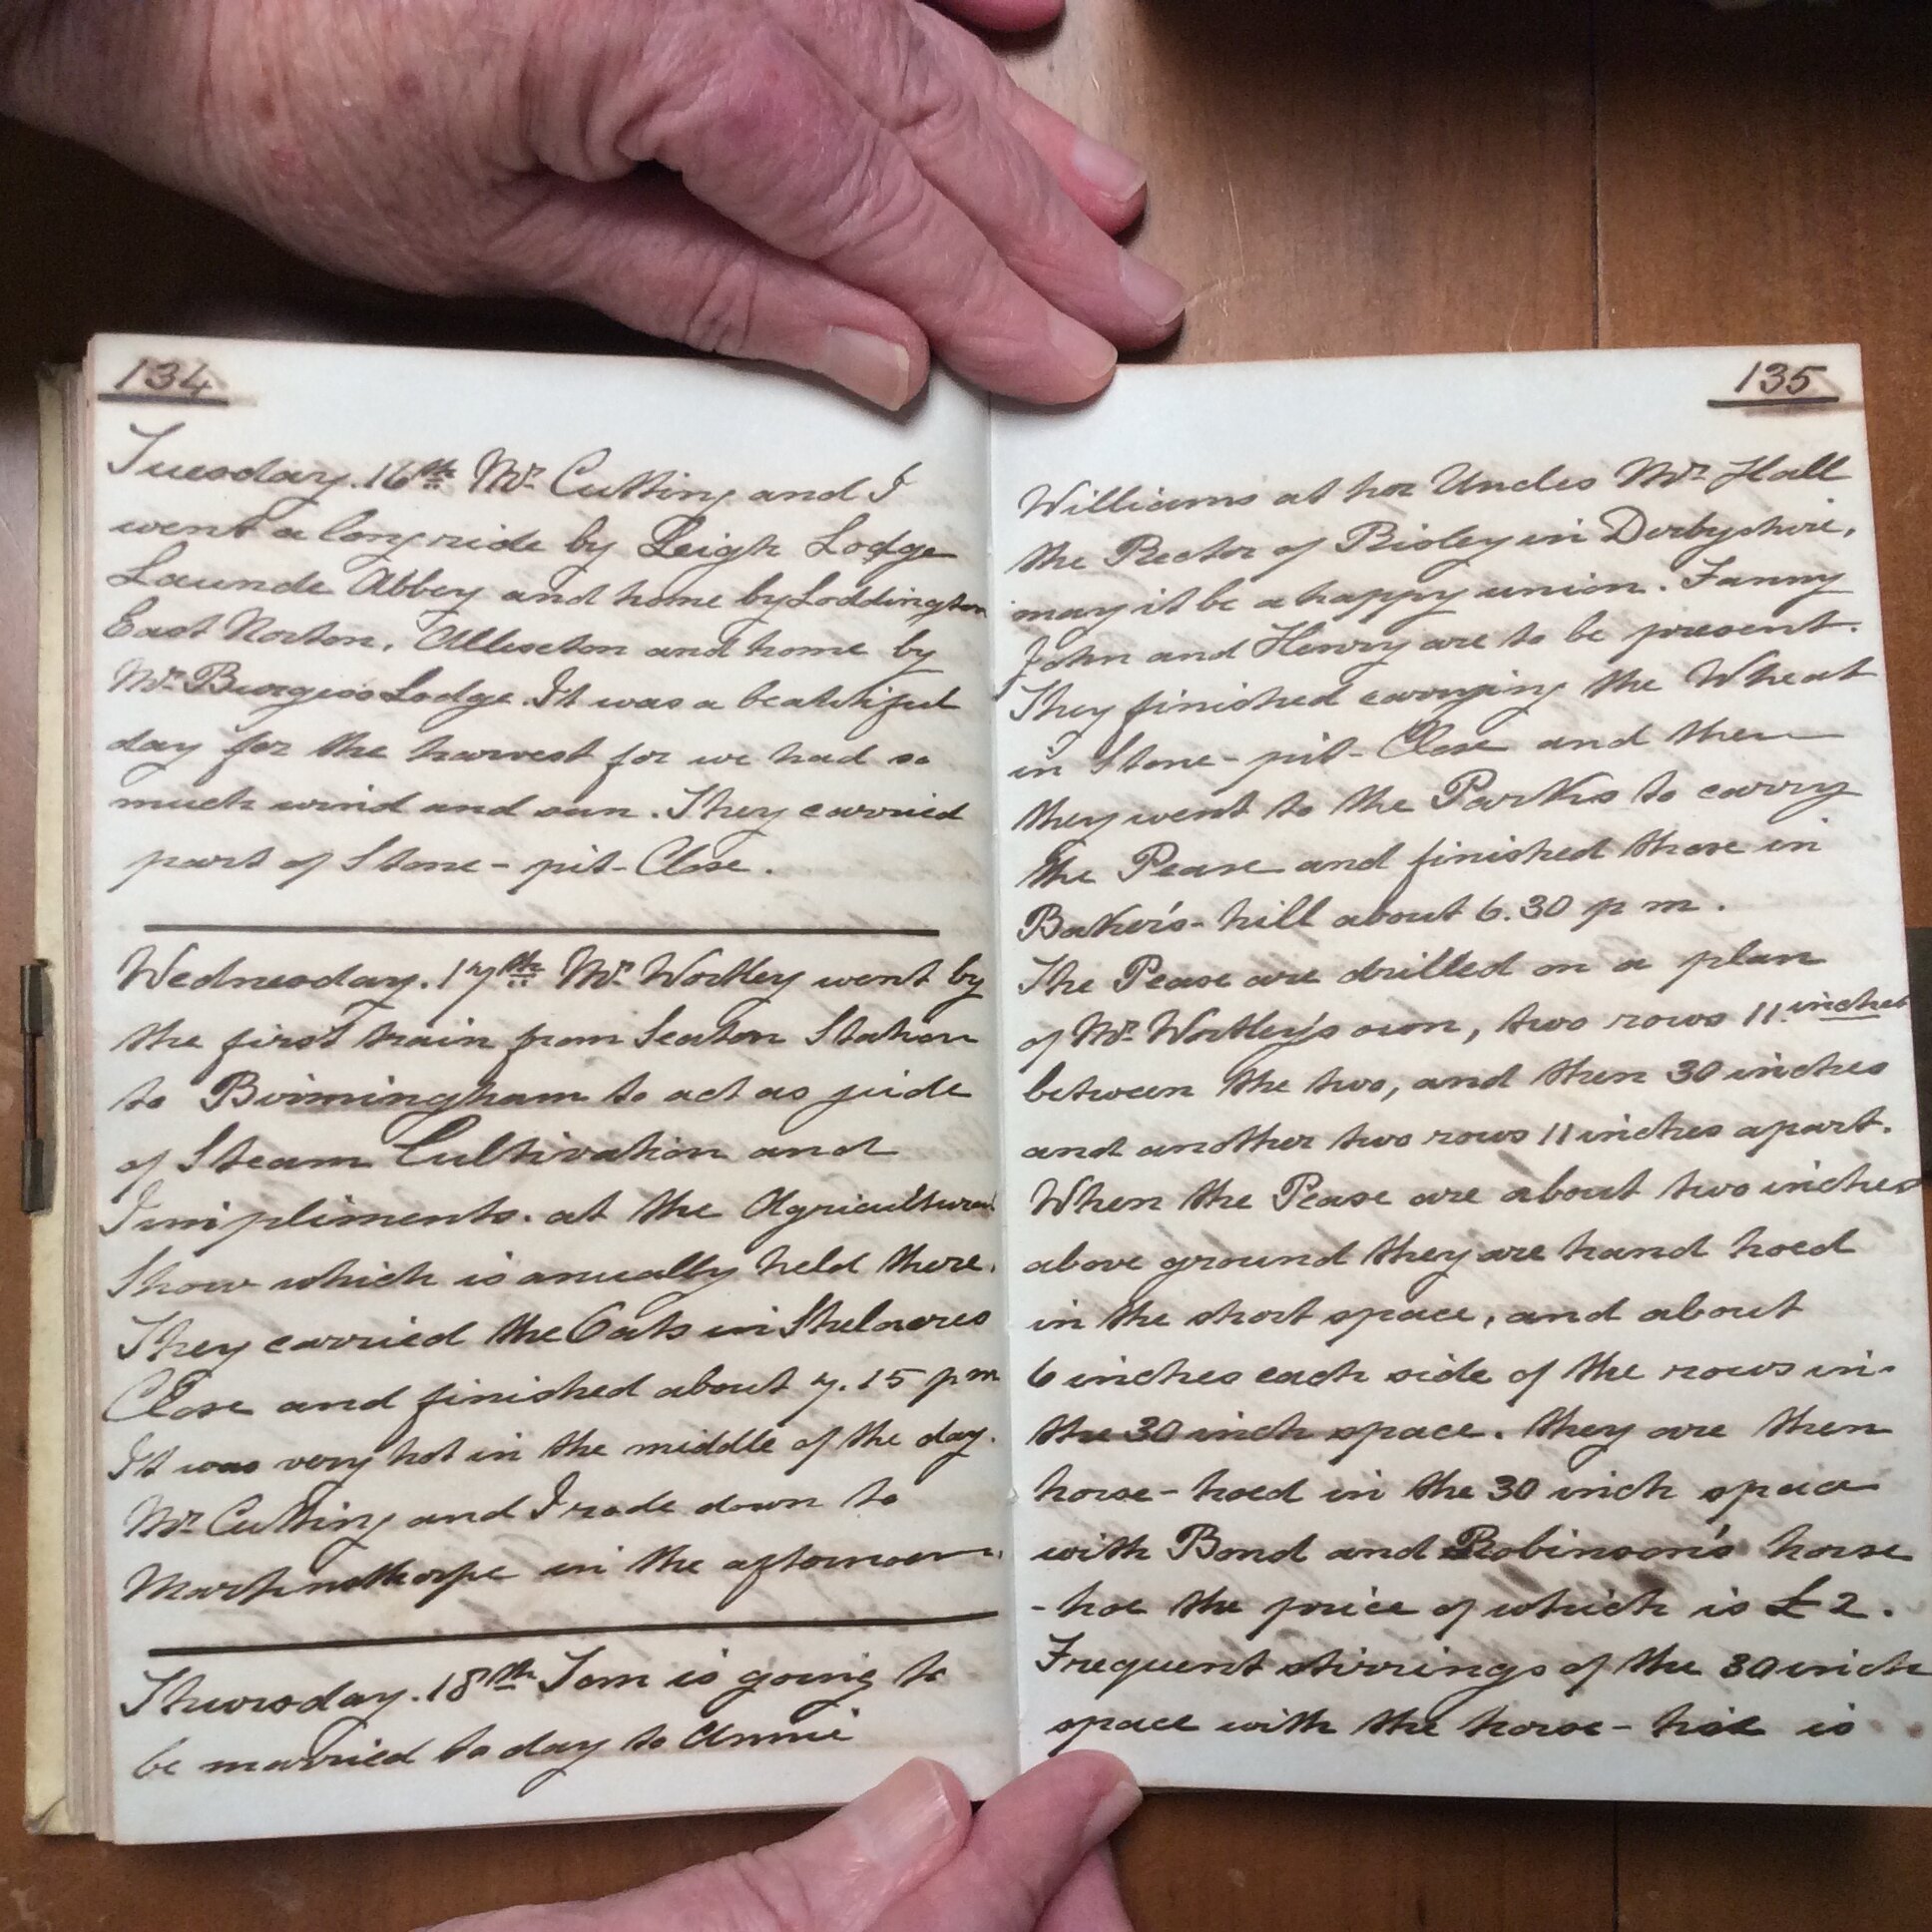 134
Tuesday. 16th Mr. Cutting and I
went a long ride by Leigh Lodge
Launde Abbey and home by Loddington
East Norton, Allexton and home by
Mr. Burgess Lodge. It was a beautiful
day for the harvest for we had so
much wind and sun. They carried
part of Stone-pit-Close.
Wednesday. 17th Mr. Wortley went by
the first train from Seaton Station
to Birmingham to act as jude
of Steam Cultivation and
Impliments. at the Agricultural
Show which is anually held there.
They carried the Oats in Shelacres
Close and finished about 7.15 pm
It was very hot in the middle of the day.
Mr. Cutting and I rode down to
Martinsthorpe in the afternoon.
Thursday. 18th Tom is going to
be married to day to Annie
135
Williams at her Uncles Mr. Hall
the Rector of Risley in Derbyshire,
may it be a happy union. Fanny
John and Henry are to be present.
They finished carrying the Wheat
in Stone-pit-Close and then
they went to the Parks to carry
the Pease and finished those in
Baker's-hill about 6.30 p m.
The Pease are drilled on a plan
of Mr. Wortley's own, two rows 11 inches
between the two, and then 30 inches
and another two rows 11 inches apart.
When the Pease are about two inches
above ground they are hand hoed
in the short space, and about
6 inches each side of the rows in
the 30 inch space. they are then
horse-hoed in the 30 inch space
with Bond and Robinson's horse
-hoe the price of which is £2.
Frequent stirrings of the 30 inch
space with the horse-hoe is